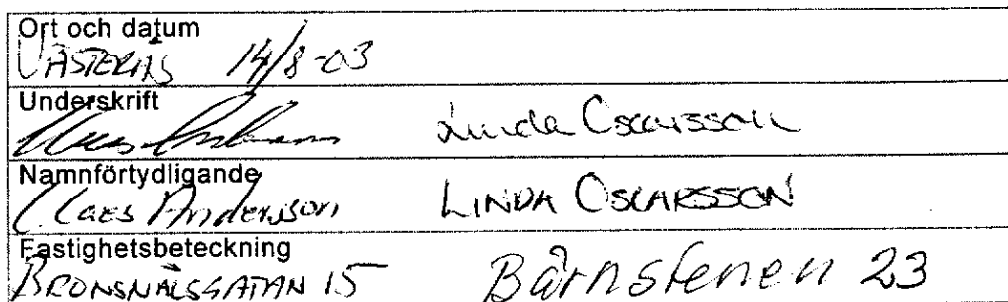 Ort och datum
VÄSTERÅS 14/8-03
Underskrift
Linda Oscarsson
Namnförtydligande
Claes Andersson LINDA OSCARSSON
Fastighetsbeteckning
BRONSNÅLSGATAN 15 Bärnstenen 23